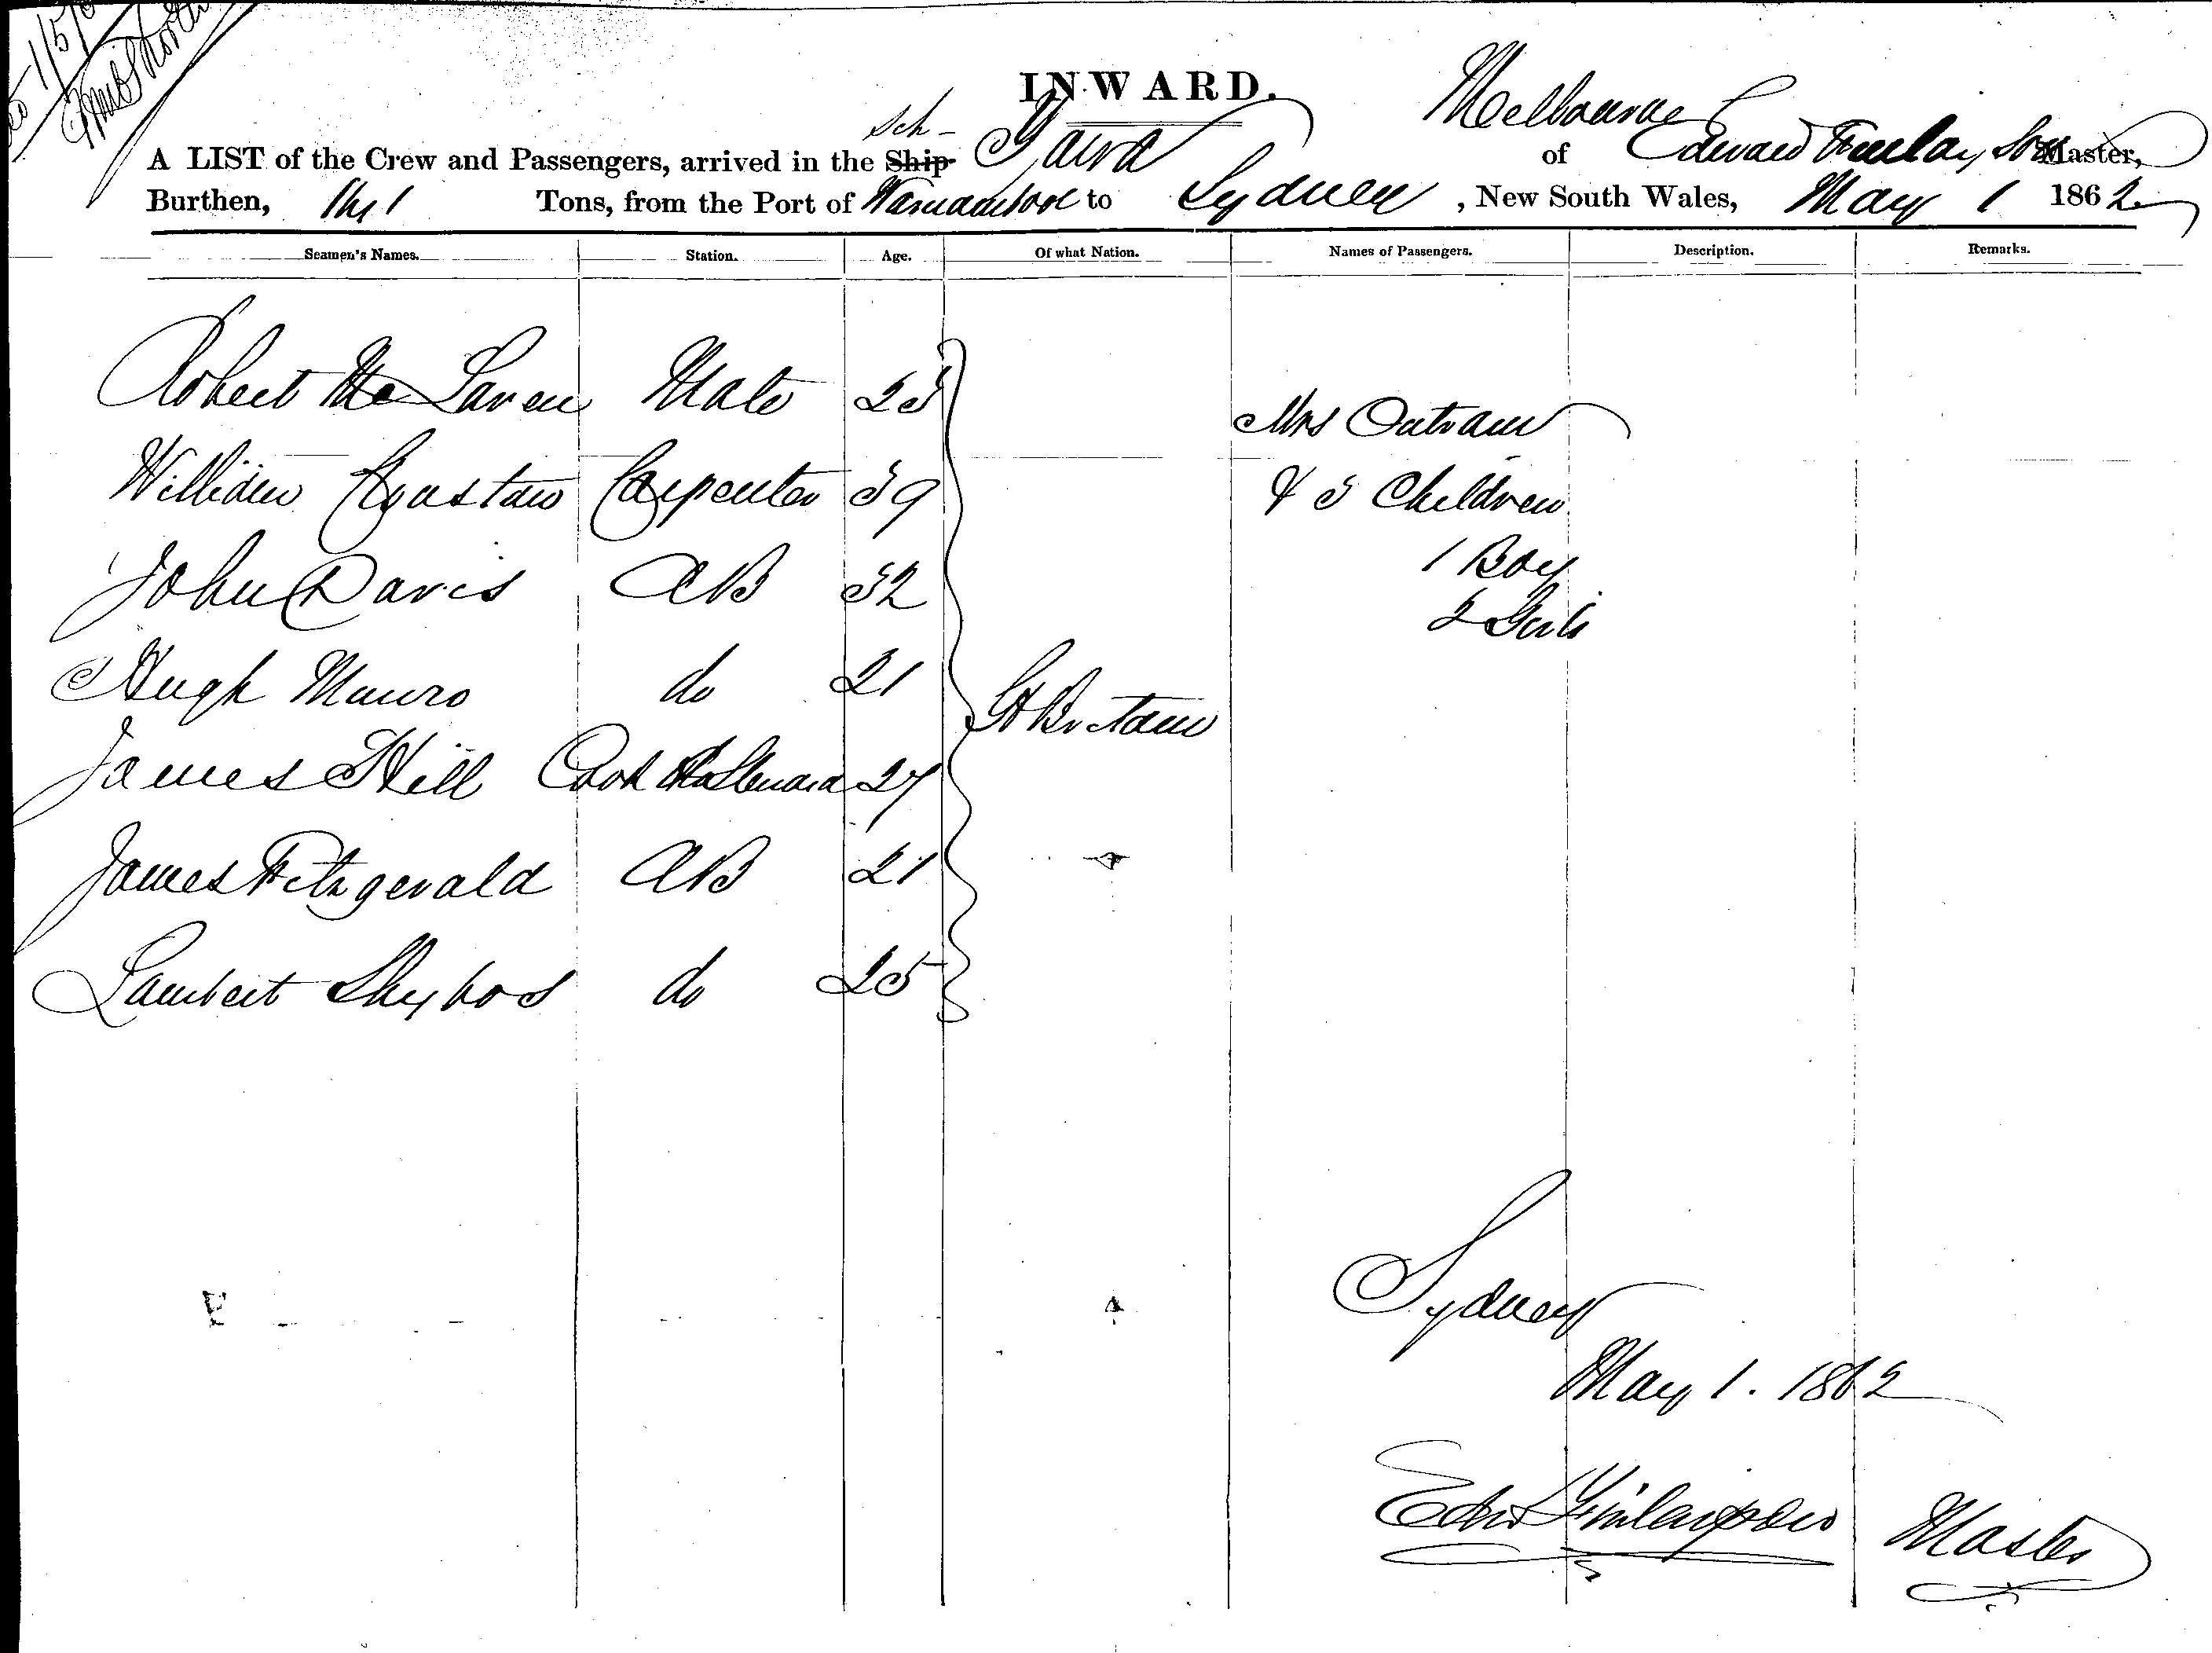 INWARD.
Sch- Melbourne
A LIST of the Crew and Passengers, arrived in the Ship of Edward Finlayson Master,
Burthen, Tons, from the Port of Warnambool to Sydney, New South Wales, May 1 1862
Seamen's Names. Station. Age. Of what Nation. Names of Passengers. Description. Remarks.
Robert Mc Laren Mate 23
Mrs Outram
William Carpenter 39
& 3 Children
John Davis AB 32
1 Boy
2 Girls
Hugh Munro do 21
Gt Britain
James Hill Cook & Steward 27
James Fitzgerald AB 21
Lambert do 25
Sydney
May 1. 1862
Edwd Finlayson Master